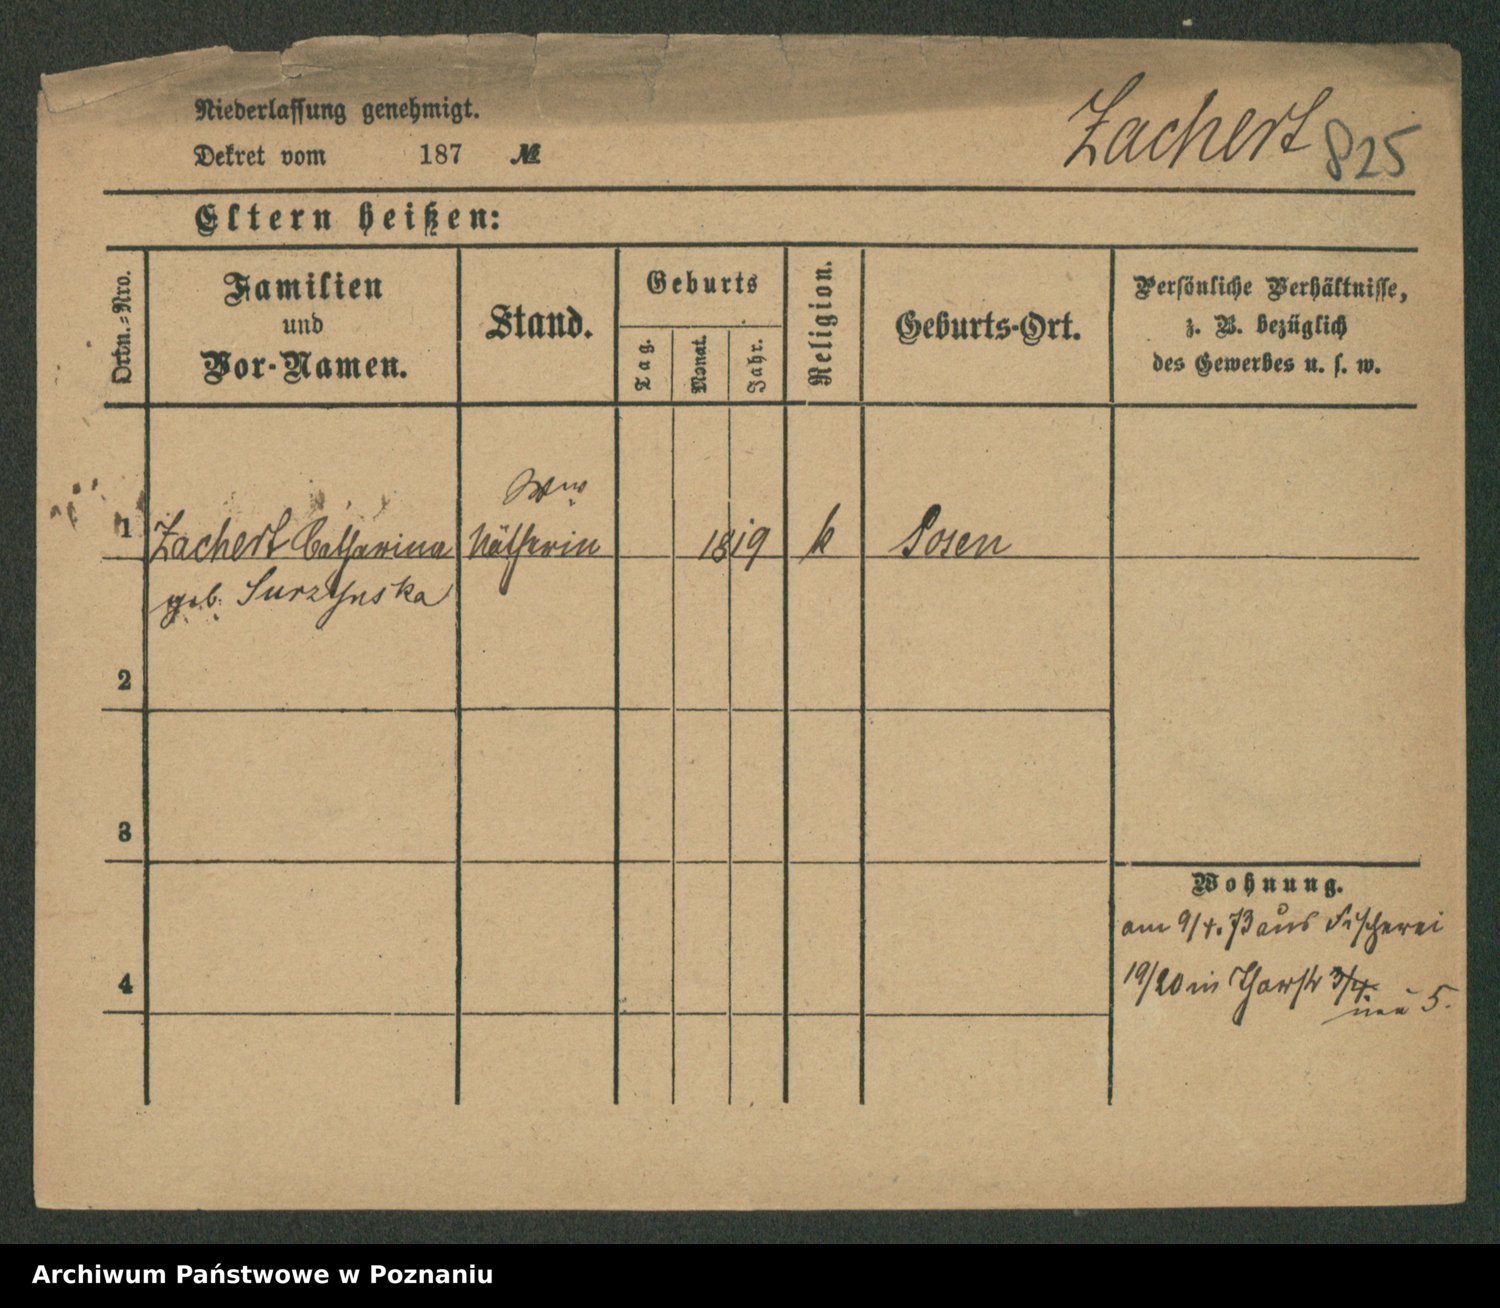 Niederlassung genehmigt.
Dekret vom 187 №
Zachert 825
Eltern heißen:
Ordn.=Nro.
Familien
und
Vor-Namen.
Stand.
Geburts
Tag.
Monat.
Jahr.
Religion.
Geburts-Ort.
Persönliche Verhältnisse,
z. B. bezüglich
des Gewerbes u. s. w.
Wwe
1 Zachert Catharina Nätherin 1819 k Posen
geb. Surzynska
2
3
Wohnung.
am 9/4. 73 aus Fischerei
4
19/20 in Thorstr 3/4.
neu 5.
Archiwum Państwowe w Poznaniu